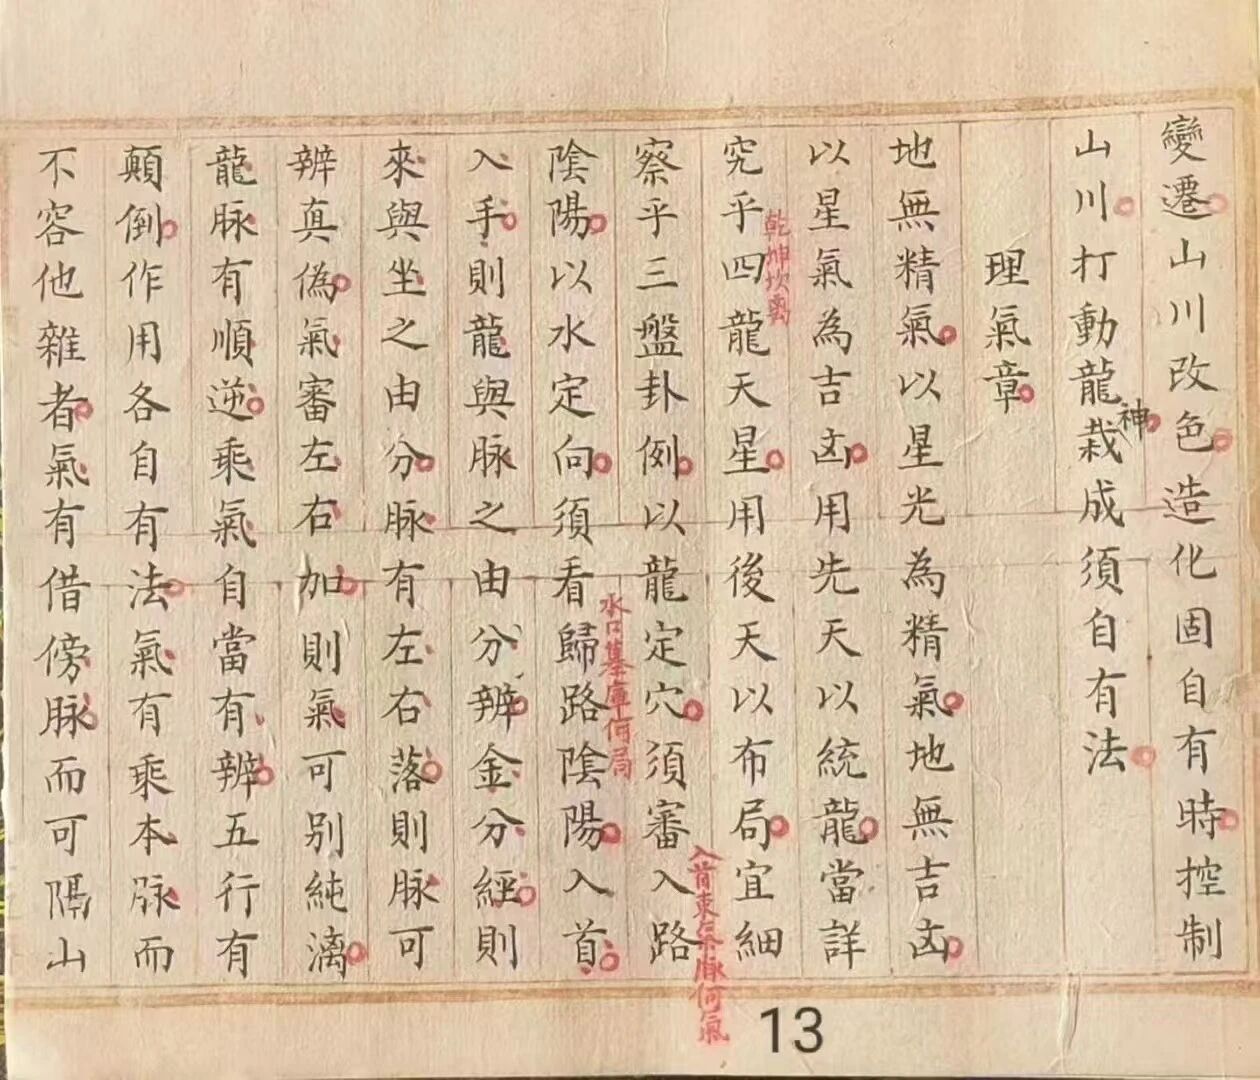 變遷山川改色造化固自有時控制
山川打動龍神栽成須自有法
理氣章
地無精氣以星光為精氣地無吉凶
以星氣為吉凶用先天以統龍當詳
乾坤坎离
究乎四龍天星用後天以布局宜細
察乎三盤卦例以龍定穴須審入路
入首束氣脉何氣
陰陽以水定向須看歸路陰陽入首
水口墓庫何局
入手則龍與脉之由分辨金分經則
來與坐之由分脉有左右落則脉可
辨真偽氣審左右加則氣可別純漓
龍脉有順逆乘氣自當有辨五行有
顛倒作用各自有法氣有乘本脉而
不容他雜者氣有借傍脉而可隔山
13